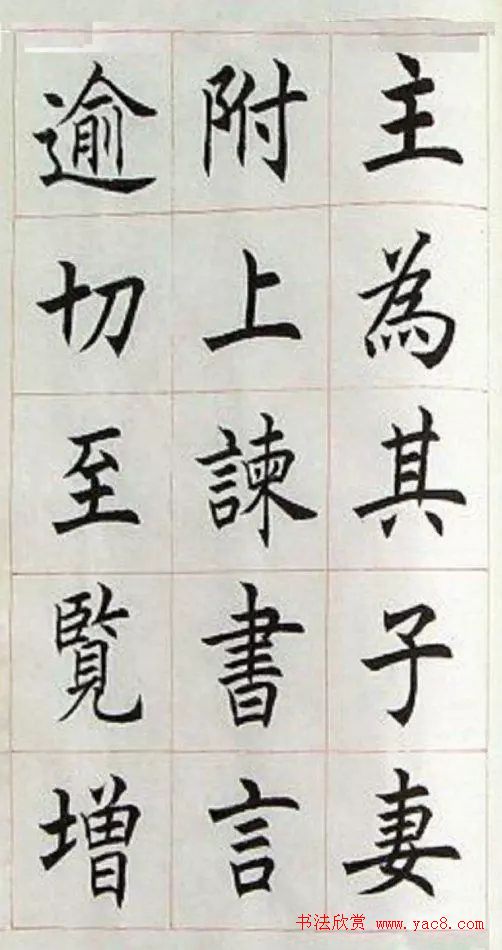 主為其子妻
附上諫書言
逾切至覽増
书法欣赏 www.yac8.com